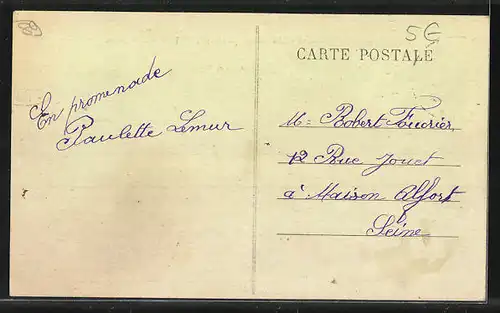 5€
CARTE POSTALE
En promenade
Paulette Lemur
M= Robert Fourier
12 Rue Jouet
à Maison Alfort
Seine